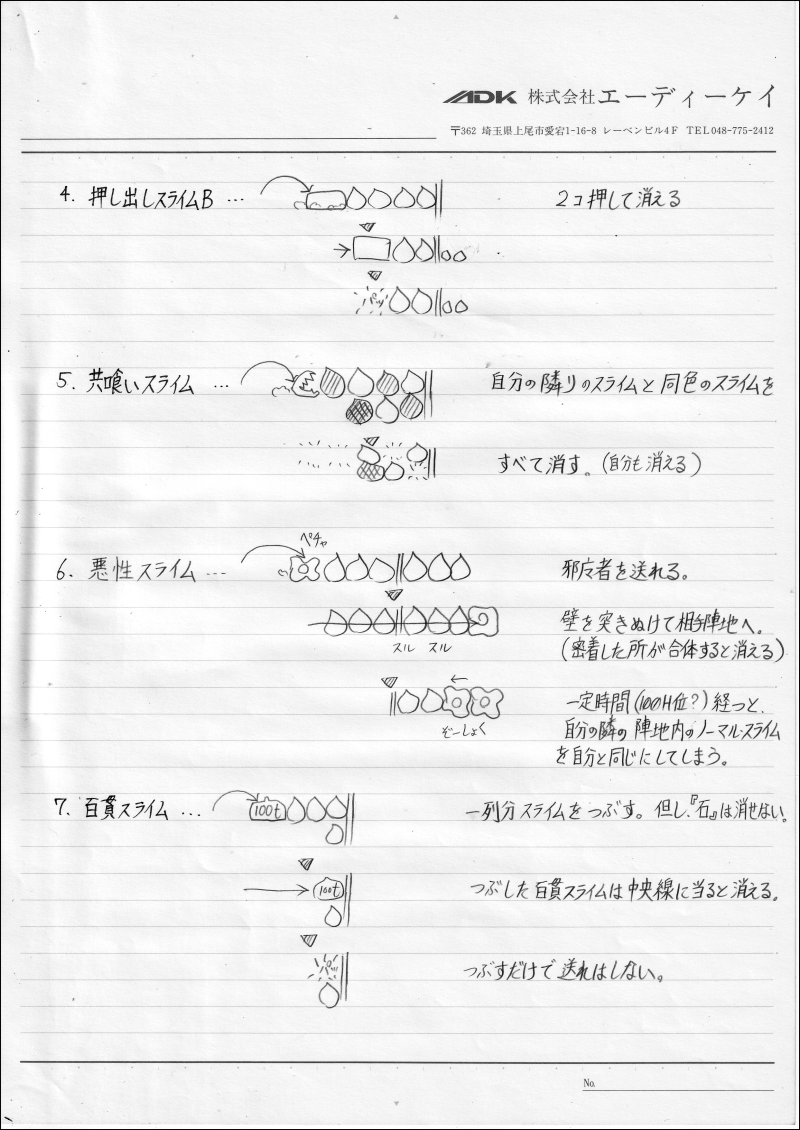 ADK 株式会社エーディーケイ
〒362 埼玉県上尾市愛宕1-16-8 レーベンビル4F TEL048-775-2412
4. 押し出しスライムB … 2コ押して消える
パッ
5. 共喰いスライム … 自分の隣りのスライムと同色のスライムを
すべて消す。(自分も消える)
ペチャ
6. 悪性スライム … 邪広者を送れる。
壁を突きぬけて相手陣地へ。
スル スル
(密着した所が合体すると消える)
一定時間(100H位?)経つと、
ぞーしょく
自分の隣の陣地内のノーマルスライム
を自分と同じにしてしまう。
7. 百貫スライム … 100t 一列分スライムをつぶす。但し、『石』は消せない。
100t つぶした百貫スライムは中央線に当ると消える。
パッ
つぶすだけで送れはしない。
No.